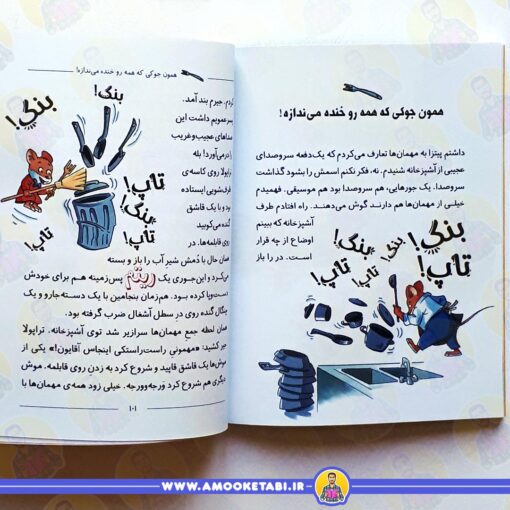 همون جوکی که همه رو خنده می‌ندازه!
داشتم پیتزا به مهمان‌ها تعارف می‌کردم که یک‌دفعه سروصدای
عجیبی از آشپزخانه شنیدم. نه، فکر نکنم اسمش را بشود گذاشت
سروصدا. یک جورهایی، هم سروصدا بود هم موسیقی. فهمیدم
خیلی از مهمان‌ها هم دارند گوش می‌دهند. راه افتادم طرف
آشپزخانه که ببینم
اوضاع از چه قرار
است. در را باز
بنگ!
بنگ!
بنگ!
تاپ!
تاپ!
تاپ!
همون جوکی که همه رو خنده می‌ندازه!
کردم، جیرم بند آمد.
پسرعمویم داشت این
صداهای عجیب‌وغریب
را درمی‌آورد! بله
تراپولا روی کاسه‌ی
ظرف‌شویی ایستاده
بود و با یک قاشق
گنده می‌کوبید
روی قابلمه‌ها. در
همان حال با دُمش شیرِ آب را باز و بسته
می‌کرد و این‌جوری یک ریتم پس‌زمینه هم برای خودش
دست‌وپا کرده بود. هم‌زمان بنجامین با یک دسته‌جارو و یک
چنگال گنده روی در سطل آشغال ضرب گرفته بود.
همان لحظه جمع مهمان‌ها سرازیر شد توی آشپزخانه. تراپولا
جیر کشید: «مهمونیِ راست‌راستکی اینجاس آقایون!» یکی از
موش‌ها یک قاشق قاپید و شروع کرد به زدن روی قابلمه. موش
دیگری هم شروع کرد وَرجه‌وورجه. خیلی زود همه‌ی مهمان‌ها با
بنگ!
بنگ!
تاپ!
تاپ!
بنگ!
تاپ!
تاپ!
۱۰۱
WWW.AMOOKETABI.IR